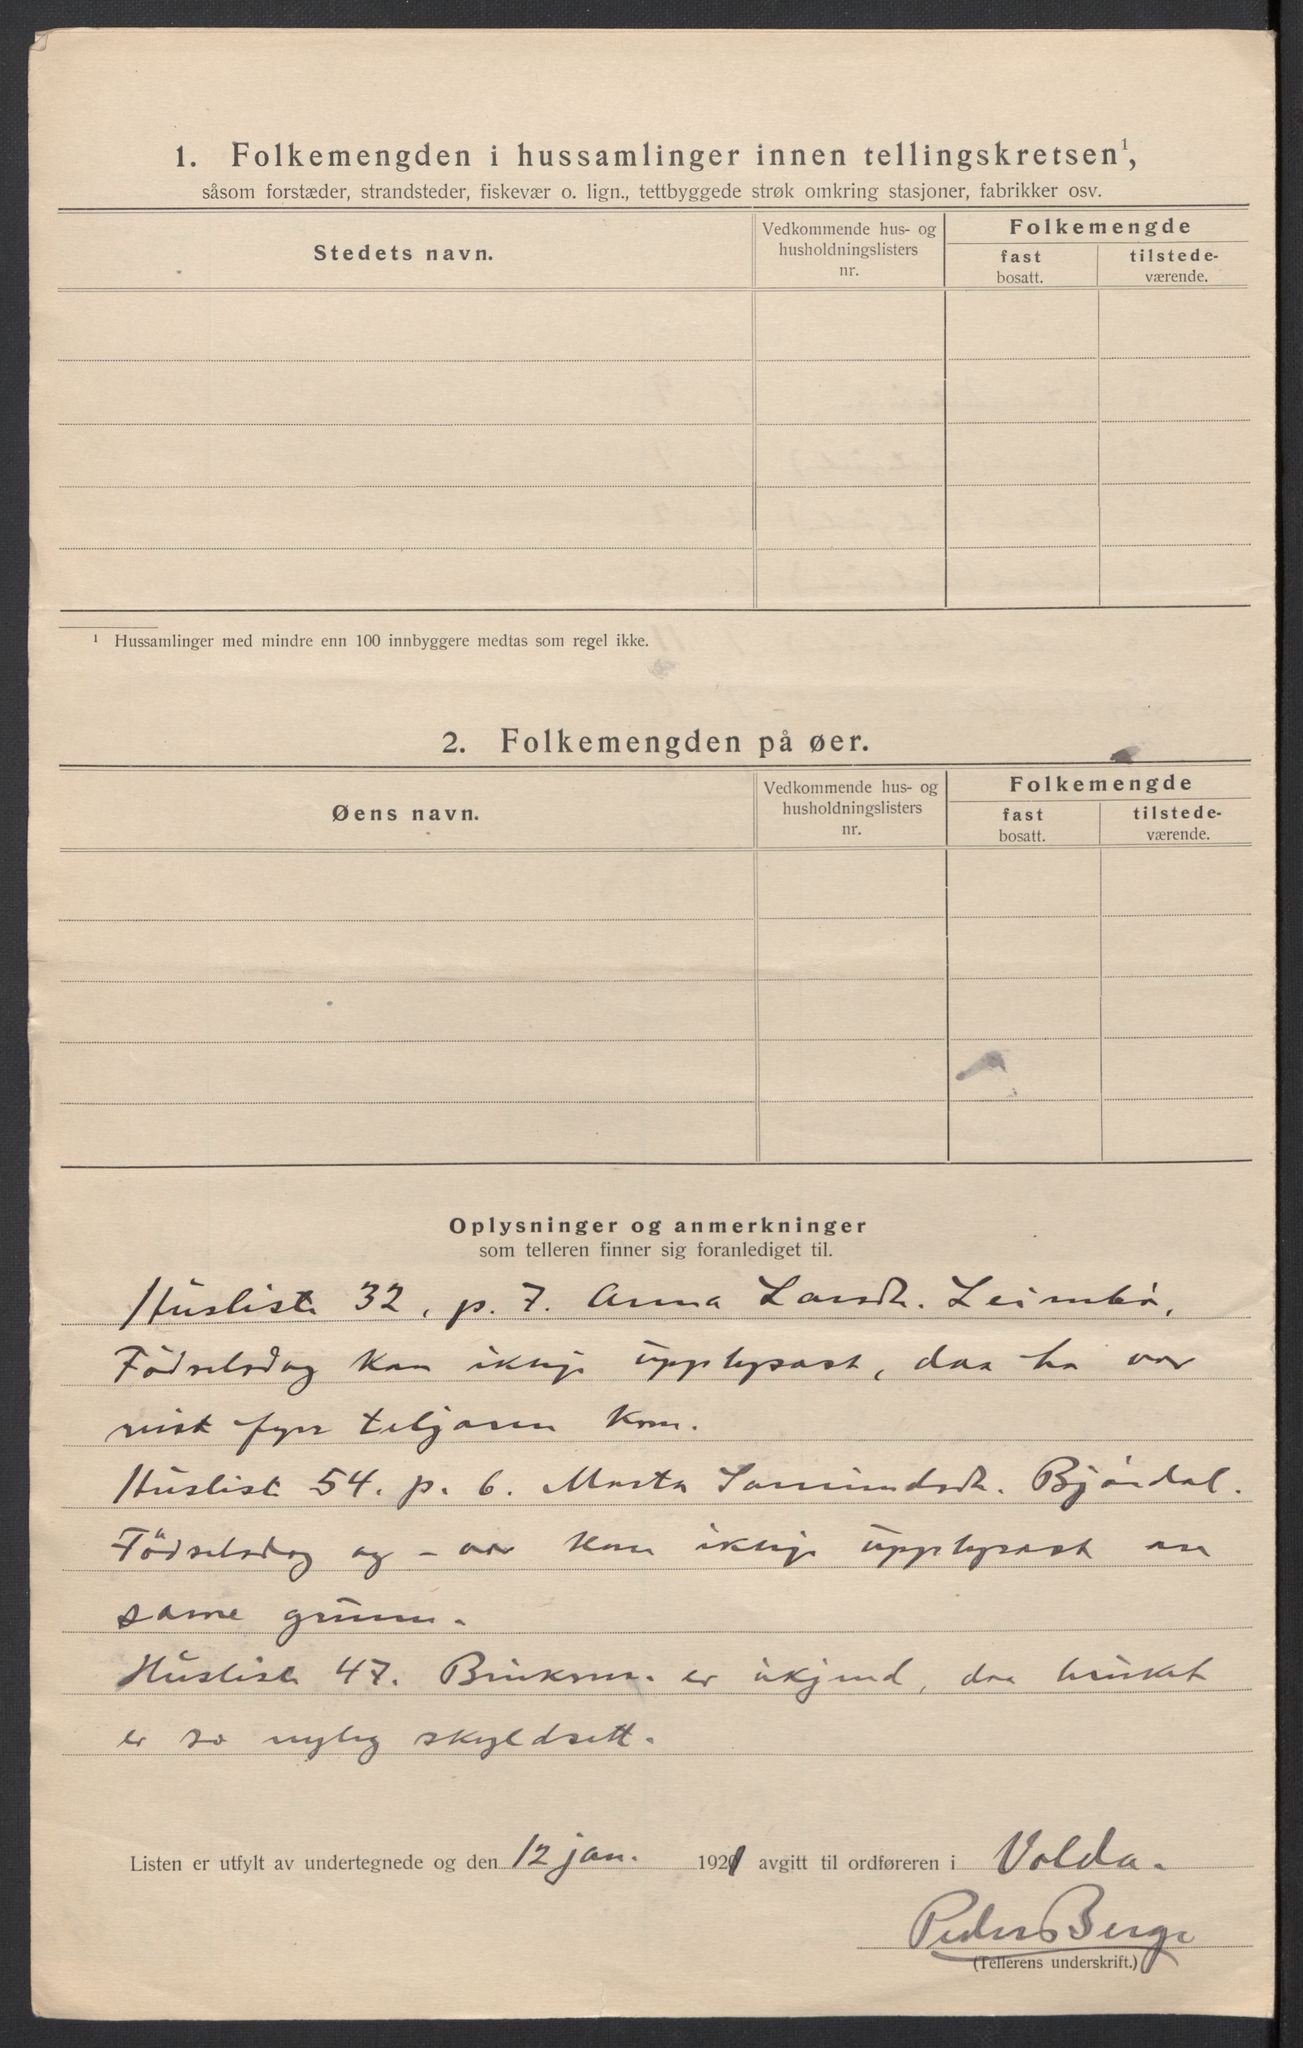 1. Folkemengden i hussamlinger innen tellingskretsen¹,
såsom forstæder, strandsteder, fiskevær o. lign., tettbyggede strøk omkring stasjoner, fabrikker osv.
Stedets navn.
Vedkommende hus- og
husholdningslisters
nr.
Folkemengde
fast
bosatt.
tilstede-
værende.
¹ Hussamlinger med mindre enn 100 innbyggere medtas som regel ikke.
2. Folkemengden på øer.
Øens navn.
Vedkommende hus- og
husholdningslisters
nr.
Folkemengde
fast
bosatt.
tilstede-
værende.
Oplysninger og anmerkninger
som telleren finner sig foranlediget til.
Husliste 32, p. 7. Anna
Fødselsdag kan ikkje upplysast, daa ho var
reist fyrr teljaren kom.
Huslist 54. p. 6. Marta Bjørdal.
Fødselsdag og - aar kan ikkje upplysast av
same grunn.
Husliste 47. er ukjend, daa bruket
er so nyleg skyldsett.
Listen er utfylt av undertegnede og den 12 jan. 1921 avgitt til ordføreren i Volda.
Peder Berge
(Tellerens underskrift.)